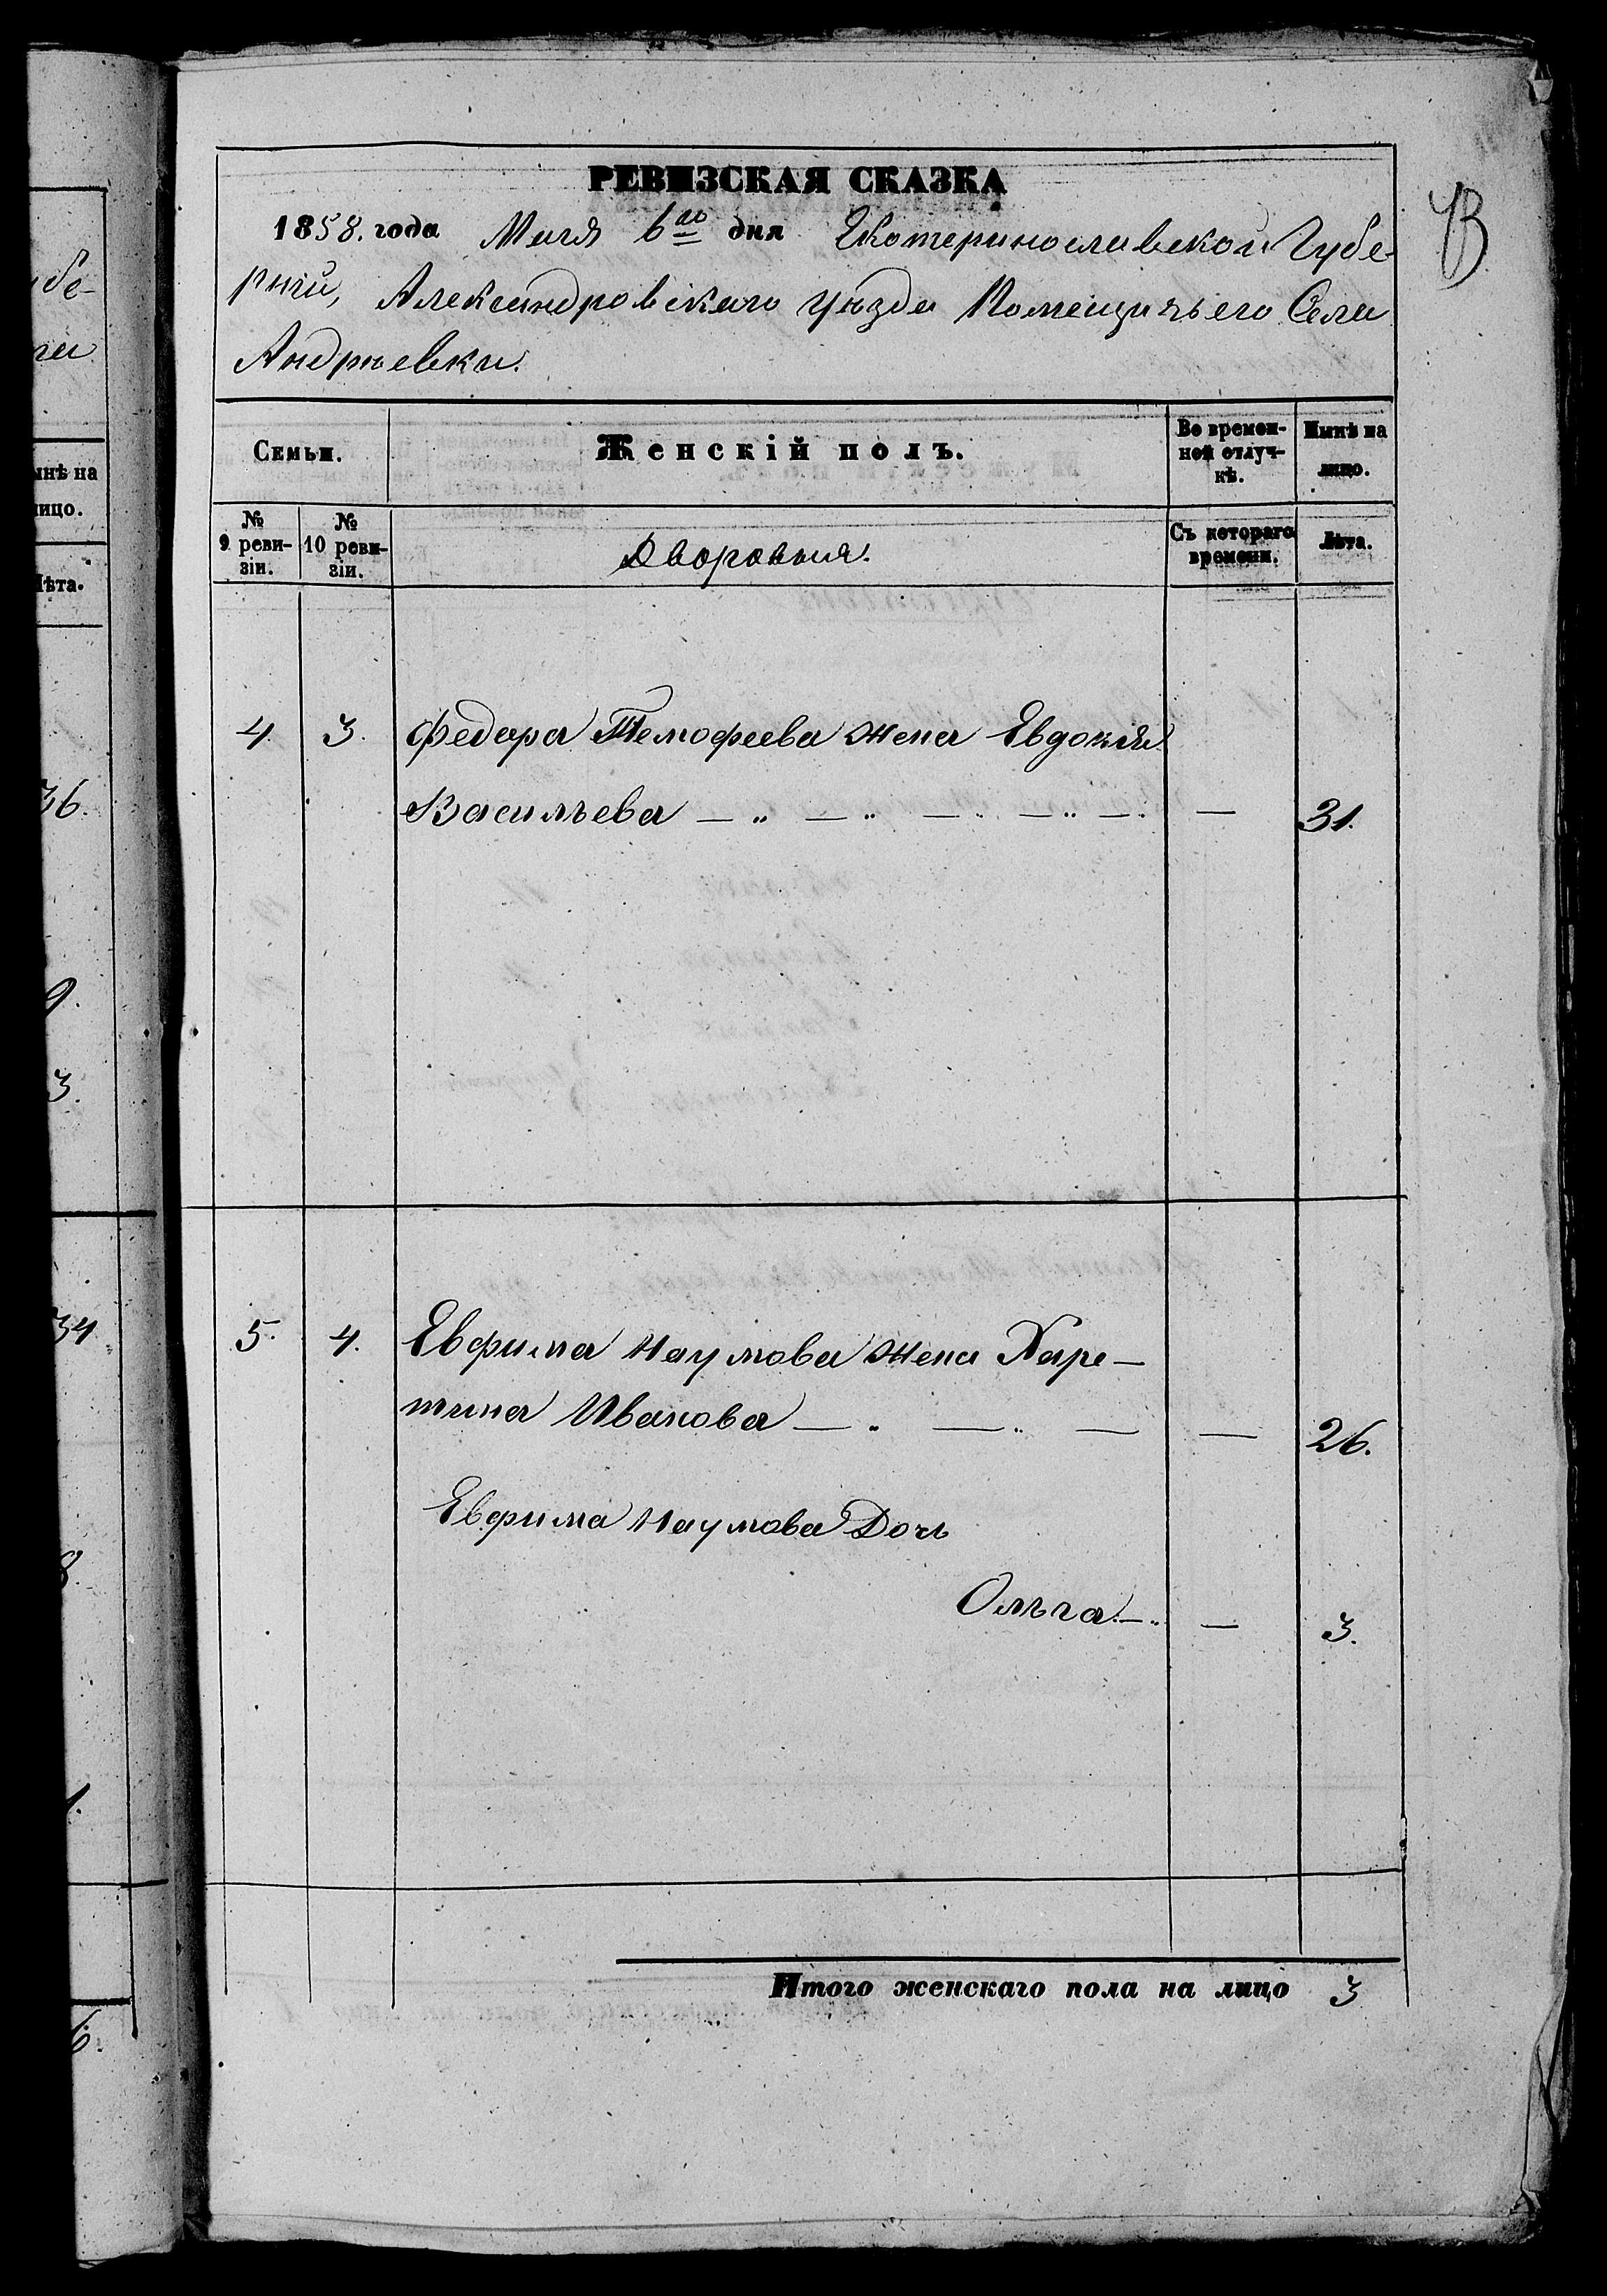 РЕВИЗСКАЯ СКАЗКА
1858. года Мая 6го дня Екатеринославской Губе-
рніи, Александровскаго уѣзда Помещичьего Села
Андрѣевки.
Семьи.
Женскій полъ.
Во времен-
ной отлуч-
кѣ.
Нынѣ на
лицо.
№
9 реви-
зіи.
№
10 реви-
зіи.
Дворовыя.
Съ котораго
времени.
Лѣта.
4. 3. Федора Темофеева жена Евдокія
Васильева — „ — „ — „ — „ — — 31.
5. 4. Евфима Наумова жена Харе-
тина Иванова — „ — „ — — 26.
Евфима Наумова Дочь
Ольга. — „ — 3.
Итого женскаго пола на лицо 3
ынѣ на
ицо.
ѣта.
36.
9.
3.
34
8.
1.
6.